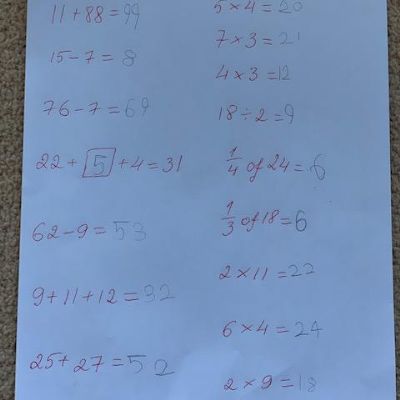 11 + 88 = 99
15 - 7 = 8
76 - 7 = 69
22 + 5 + 4 = 31
62 - 9 = 53
9 + 11 + 12 = 32
25 + 27 = 52
5 × 4 = 20
7 × 3 = 21
4 × 3 = 12
18 ÷ 2 = 9
1/4 of 24 = 6
1/3 of 18 = 6
2 × 11 = 22
6 × 4 = 24
2 × 9 = 18